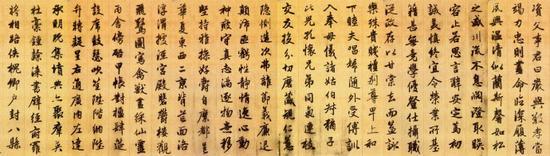 資父事君曰嚴與敬孝當
竭力忠則盡命臨深履薄
夙興溫凊似蘭斯馨如松
之盛川流不息淵澄取映
容止若思言辭安定篤初
誠美慎終宜令榮業所基
籍甚無竟學優登仕攝職
從政存以甘棠去而益詠
樂殊貴賤禮別尊卑上和
下睦夫唱婦隨外受傅訓
入奉母儀諸姑伯叔猶子
比兒孔懷兄弟同氣連枝
交友投分切磨箴規仁慈
隱惻造次弗離節義廉退
顛沛匪虧性靜情逸心動
神疲守真志滿逐物意移
堅持雅操好爵自縻都邑
華夏東西二京背邙面洛
浮渭據涇宮殿盤鬱樓觀
飛驚圖寫禽獸畫綵仙靈
丙舍傍啟甲帳對楹肆筵
設席鼓瑟吹笙陞階納陛
弁轉疑星右通廣內左達
承明既集墳典亦聚群英
杜稾鍾隸漆書壁經府羅
將相路俠槐卿戶封八縣